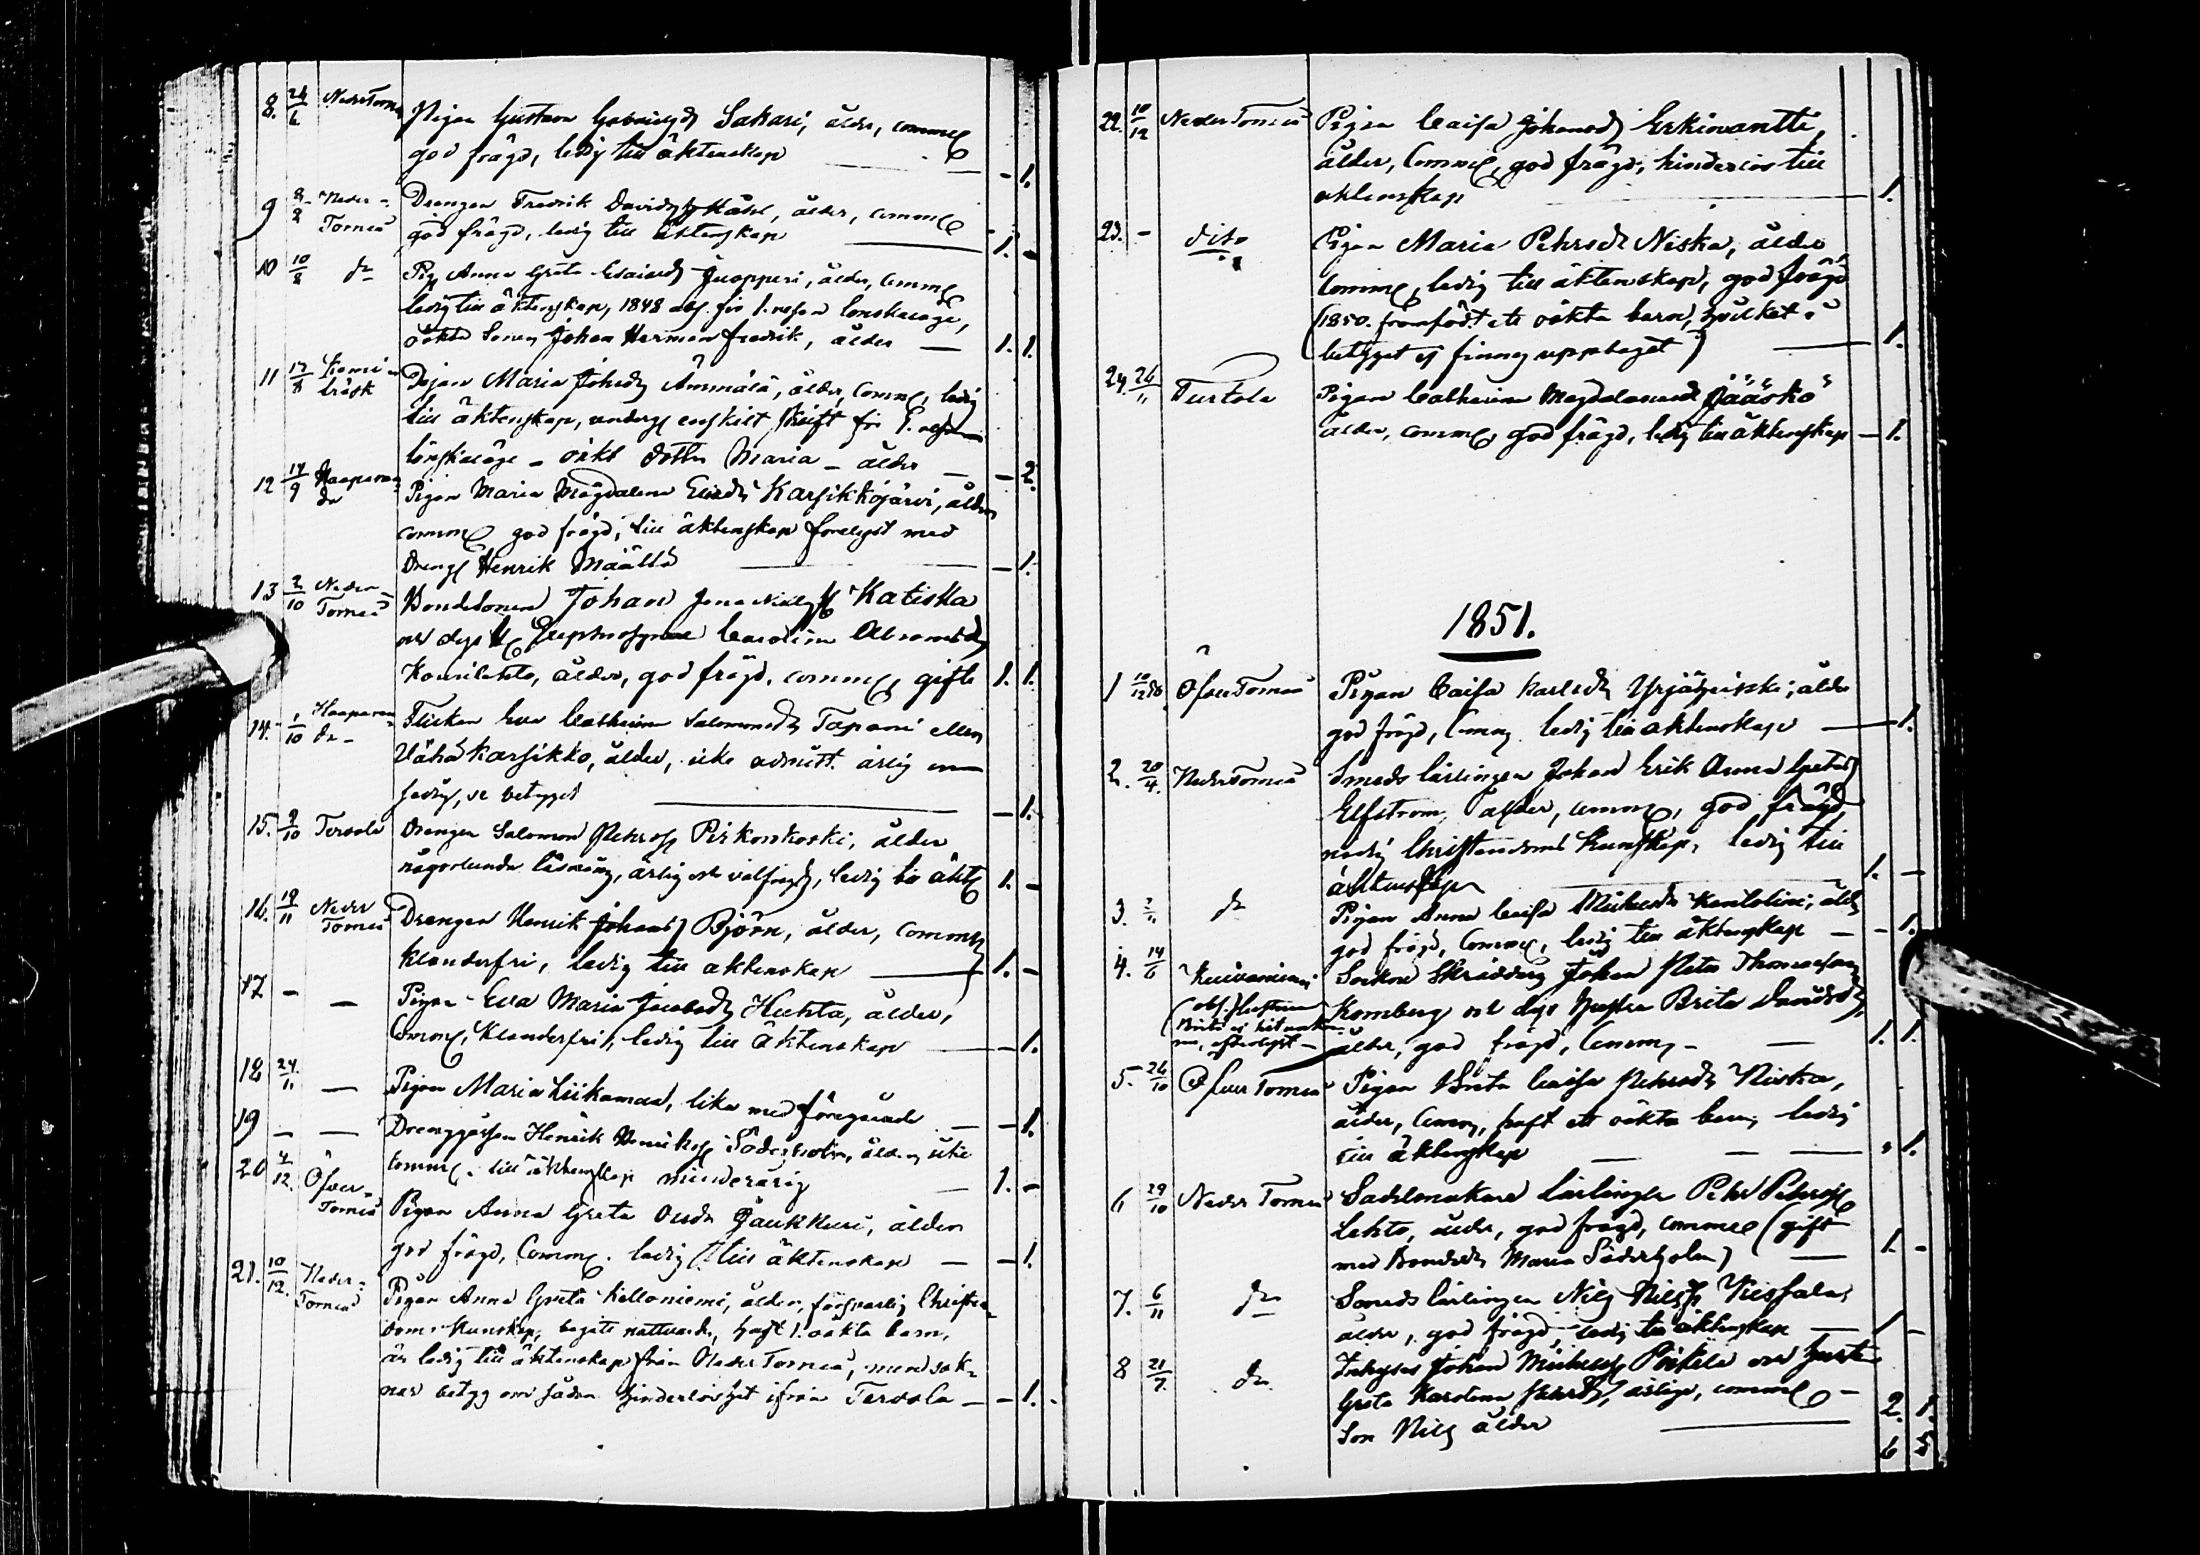 8. 24/6 Neder Torneå Pigan Gustava Gabrielsd Sakari, ålder, comme
god frägd, ledig till äktenskap — 1.
9 8/8 Neder- Drengen Fredrik Davids ålder, comme
Torneå god frägd, ledig till äktenskap — 1. -
10 10/8 do Pig Anna Greta Esaiasd Juopperi, ålder, comme
ledig till äktenskap, 1848 abs. för 1. resan lönskaläge,
oäkta Sonen Johan Herman Fredrik, ålder — 1. 1.
11 17/8 Kemi- Pigan Maria Johsd Ämmälä, ålder, comme, ledig
träsk till äktenskap, enskilt skrift för 1. resan
lönskaläge - oäkt dotter Maria - ålder — 2.
12 14/9 Haaparan- Pigan Maria Magdalena Elisd Karsikkojärvi, ålder
da comme god frägd, till äktenskap förelyst med
Dreng Henrik Määttä — 1.
13 2/10 Neder- Bondesonen Johan Katiska
Torneå och dess Carolina Abramsd
ålder, god frägd, comme, gifte 1. 1.
14. 1/10 Haaparan- Flickan Eva Catharina Salomonsd Tapani eller
da - Vähä Karsikko, ålder, icke admitt. ärlig
ledig, se betyget — 1.
15. 9/10 Tervola Drengen Salomon Pehrss Pirkonkoski, ålder
någorlunda läsning, ärlig och välfrägd, ledig till äkt 1. -
16. 19/11 Neder Drengen Henrik Johans Björn, ålder, comme
Torneå klanderfri, ledig till äktenskap — 1. -
17 - - Pigan Eva Maria Jacobsd Huhta, ålder,
Comme, klanderfri, ledig till äktenskap — 1.
18 24/11 — Pigan Maria Liikamaa, lika med föregående — 1.
19 - — Drenggossen Henrik Henriks Söderholm, ålder, icke
comme. till äktenskap minderårig — 1. -
20 4/12. Öfver- Pigan Anna Greta Olsdr Jaukkuri, ålder
Torneå god frägd, Comme. ledig till äktenskap — 1.
21. 10/12. Neder- Pigan Anna Greta Kelloniemi, ålder, försvarlig Christen-
Torneå doms Kunskap, begått nattvard, haft 1. oäkta barn,
är ledig till äktenskap från Neder Torneå, men sak-
nar betyg om sådan hinderlöshet ifrån Tervola — 1.
22. 10/12 Neder Torneå Pigan Caisa Johansd Erkinantti,
ålder, Comme, god frägd, hinderlös till
äktenskap — 1.
23. - dito Pigan Maria Pehrsdr Niska, ålder
Comme, ledig till äktenskap, god frägd
(1850. framfödt ett oäkta barn, hvilket i
betyget ej finnes upptaget) — 1.
24. 26/11 Turtola Pigan Catharina Magdalena Jääskö
ålder, comme, god frägd, ledig till äktenskap — 1.
1851.
1 10/12 50. Öfver Torneå Pigan Caisa Karlsdr Yrjänheikki, ålder
god frägd, Comme, ledig till äktenskap — 1.
2. 20/4. Neder Torneå Smeds lärlingen Johan Erik Anna Gretas
Elfström, ålder, comme, god frägd
nödig Christendoms Kunskap, ledig till
äktenskap — 1. -
3. do Pigan Anna Caisa Michelsdr Kantolini, ålder
god frägd, Comme, ledig till äktenskap — 1.
4. 14/6 Kuivaniemi Sockne Skräddare Johan Petter Thomasson
(obs. hustrun Komberg och dess hustru Brita Davidsd,
Brita ej
efterlyst - ålder, god frägd, Comme, — 1. 1.
5. 26/10 Öfver Torneå Pigan Brita Caisa Pehrsdr Niska,
ålder, Comme, haft ett oäkta barn, ledig
till äktenskap — 1.
6 29/10 Neder Torneå Sadelmakare lärlingen Pehr Pehrss
Lehto, ålder, god frägd, comme (gift
med Bondedr Maria Söderholm) — 1. -
7. 6/11 do Smeds lärlingen Nils Nilss
ålder, god frägd, ledig till äktenskap — 1 -
8 21/7. do. Inhyses Johan Michelss och hustru
Greta Karolina Pehrsd, ärlige, comme -
Son Nils ålder — 2. 1.
6 5